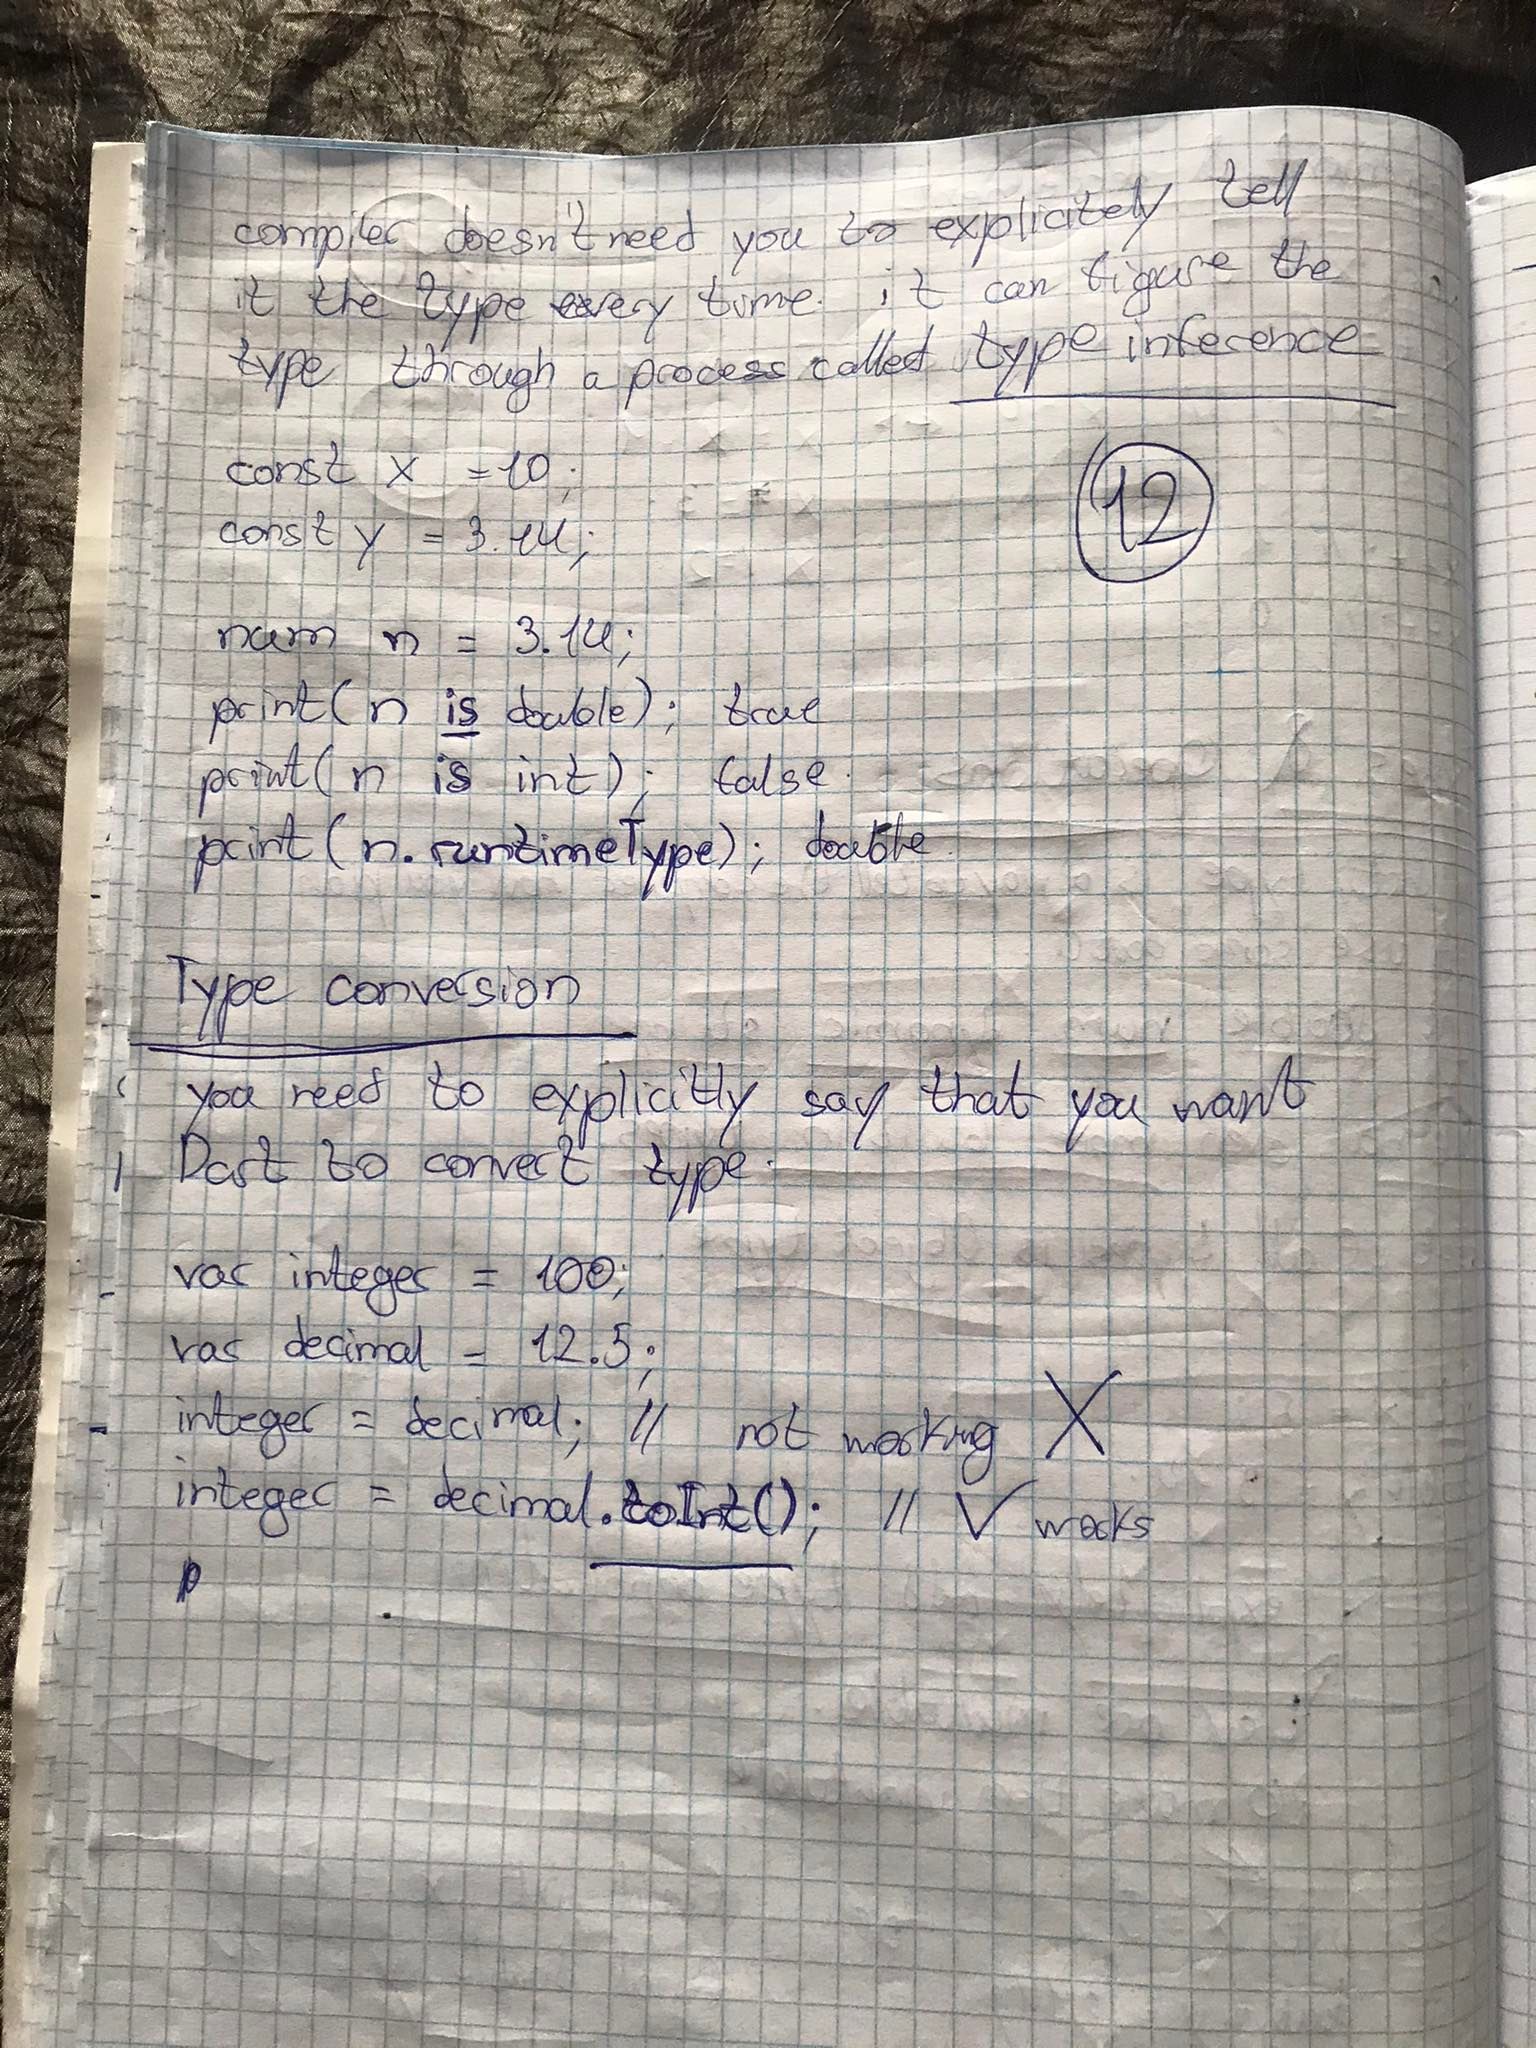 compiler doesn't need you to explicitely tell
it the type every time. it can figure the
type through a process called type inference
const x = 10;
const y = 3.14;
12
num n = 3.14;
print(n is double); true
print(n is int); false.
print(n.runtimeType); double
Type conversion
you need to explicitly say that you want
Dart to convert type.
var integer = 100;
var decimal = 12.5;
integer = decimal; // not working X
integer = decimal.toInt(); // ✓ works
p